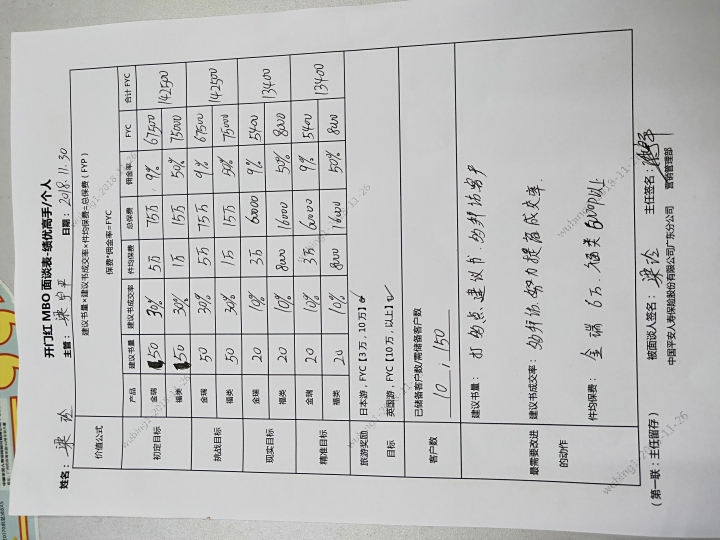 开门红 MBO 面谈表-绩优高手/个人
姓名： 梁 主管： 梁 日期： 2018.11.30
价值公式 建议书量×建议书成交率×件均保费=总保费（FYP）
保费*佣金率=FYC
产品 建议书量 建议书成交率 件均保费 总保费 佣金率 FYC 合计 FYC
初定目标 金瑞 50 30% 5万 75万 9% 67500 142500
福类 50 30% 1万 15万 50% 75000
挑战目标 金瑞 50 30% 5万 75万 9% 67500 142500
福类 50 30% 1万 15万 50% 75000
现实目标 金瑞 20 10% 3万 60000 9% 5400 13400
福类 20 10% 8000 16000 50% 8000
精准目标 金瑞 20 10% 3万 60000 9% 5400 13400
福类 20 10% 8000 16000 50% 8000
旅游奖励目标 日本游，FYC【3 万，10 万】
英国游，FYC【10 万，以上】
客户数 已储备客户数/需储备客户数
10 , 150
最需要改进的动作 建议书量： 打 点建议书.勤拜访客户
建议书成交率： 勤拜访.努力提高成交率.
件均保费： 金瑞 6万.福类 8000以上
被面谈人签名： 梁 主任签名：
中国平安人寿保险股份有限公司广东分公司 营销管理部
（ 第一联：主任留存 ）